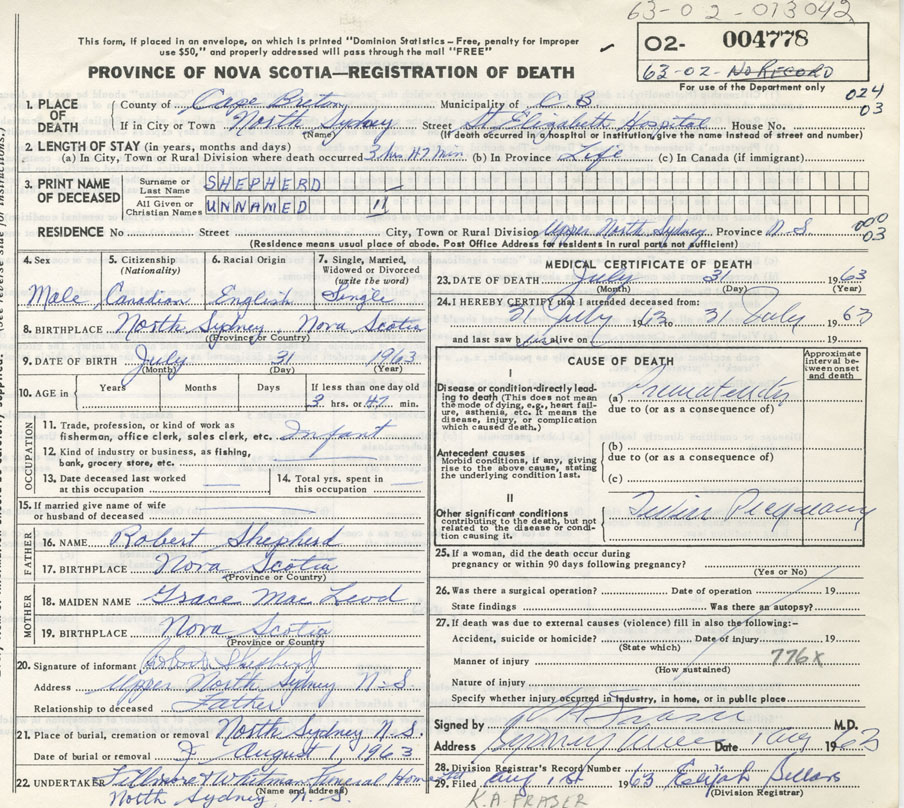 63-02-013042
This form, if placed in an envelope, on which is printed "Dominion Statistics - Free, penalty for improper
use $50," and properly addressed will pass through the mail "FREE"
02- 004778
63-02- No RECORD
For use of the Department only
PROVINCE OF NOVA SCOTIA—REGISTRATION OF DEATH
024
03
1. PLACE OF DEATH County of Cape Breton Municipality of C.B
If in City or Town North Sydney Street St Elizabeth Hospital House No.
(Name) (If death occurred in a hospital or institution, give the name instead of street and number)
2. LENGTH OF STAY (in years, months and days)
(a) In City, Town or Rural Division where death occurred 3 hrs 47 min (b) In Province Life (c) In Canada (if immigrant)
3. PRINT NAME OF DECEASED Surname or Last Name SHEPHERD
All Given or Christian Names UNNAMED
RESIDENCE No Street City, Town or Rural Division Upper North Sydney Province N.S. 000
03
(Residence means usual place of abode. Post Office Address for residents in rural parts not sufficient)
4. Sex Male
5. Citizenship (Nationality) Canadian
6. Racial Origin English
7. Single, Married, Widowed or Divorced (write the word) Single
8. BIRTHPLACE North Sydney, Nova Scotia
(Province or Country)
9. DATE OF BIRTH July 31 1963
(Month) (Day) (Year)
10. AGE in Years Months Days If less than one day old
3 hrs. or 47 min.
OCCUPATION
11. Trade, profession, or kind of work as
fisherman, office clerk, sales clerk, etc. Infant
12. Kind of industry or business, as fishing,
bank, grocery store, etc.
13. Date deceased last worked at this occupation
14. Total yrs. spent in this occupation
15. If married give name of wife
or husband of deceased
FATHER
16. NAME Robert Shepherd
17. BIRTHPLACE Nova Scotia
(Province or Country)
MOTHER
18. MAIDEN NAME Grace Mac Leod
19. BIRTHPLACE Nova Scotia
(Province or Country)
20. Signature of informant Robert Shepherd
Address Upper North Sydney N-S
Relationship to deceased Father
21. Place of burial, cremation or removal North Sydney N.S.
Date of burial or removal August 1 1963
22. UNDERTAKER Fillmore & Whitman Funeral Home Ltd
(Name and address)
North Sydney, N.S.
MEDICAL CERTIFICATE OF DEATH
23. DATE OF DEATH July 31 1963
(Month) (Day) (Year)
24. I HEREBY CERTIFY that I attended deceased from:
31 July 1963 31 July 1963
and last saw him alive on 19
CAUSE OF DEATH
Approximate interval between onset and death
I
Disease or condition directly leading to death (This does not mean
the mode of dying, e.g., heart failure, asthenia, etc. It means the
disease, injury, or complication
which caused death.)
(a) Prematurity
due to (or as a consequence of)
Antecedent causes
Morbid conditions, if any, giving
rise to the above cause, stating
the underlying condition last.
(b)
due to (or as a consequence of)
(c)
II
Other significant conditions
contributing to the death, but not
related to the disease or condition causing it.
Twin Pregnancy
25. If a woman, did the death occur during
pregnancy or within 90 days following pregnancy?
(Yes or No)
26. Was there a surgical operation? Date of operation 19
State findings Was there an autopsy?
27. If death was due to external causes (violence) fill in also the following:-
Accident, suicide or homicide? Date of injury 19
(State which)
Manner of injury 776x
(How sustained)
Nature of injury
Specify whether injury occurred in industry, in home, or in public place
Signed by Fraser M.D.
Address Sydney Mines Date 1 Aug 1963
28. Division Registrar's Record Number
29. Filed Aug 1st 1963
(Division Registrar)
K.A. FRASER